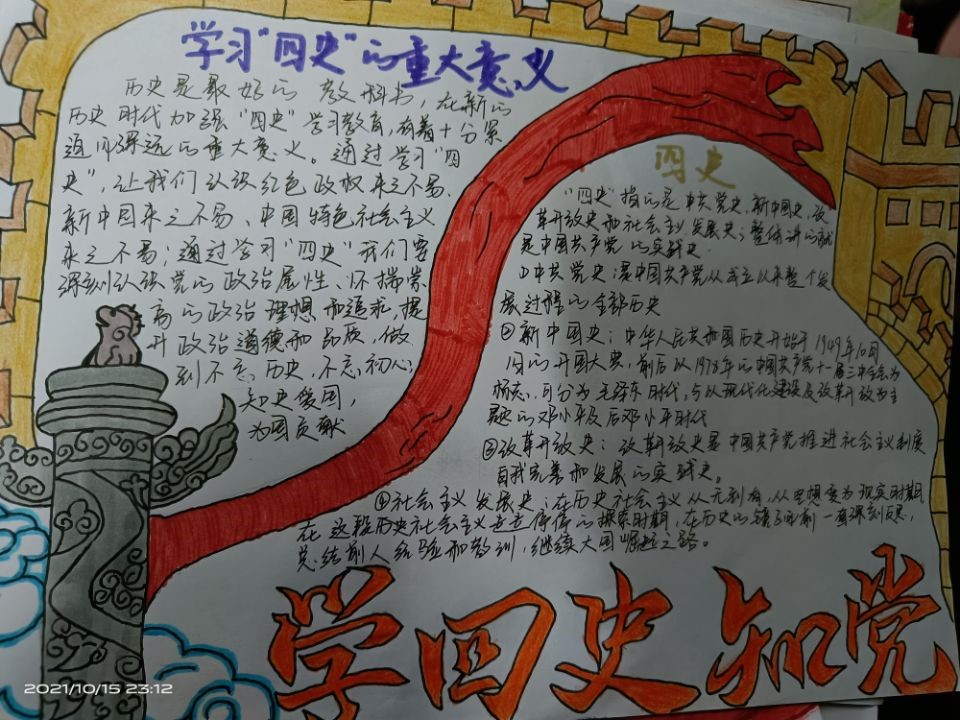 学习“四史”的重大意义
历史是最好的教科书，在新的
历史时代加强“四史”学习教育，有着十分紧
迫而深远的重大意义。通过学习“四
史”，让我们认识红色政权来之不易、
新中国来之不易、中国特色社会主义
来之不易；通过学习“四史”我们要
深刻认识党的政治属性、怀揣崇
高的政治理想和追求，提
升政治道德和品质，做
到不忘历史，不忘初心；
知史爱国，
为国贡献
四史
“四史”指的是中共党史、新中国史、改
革开放史和社会主义发展史；整体讲的就
是中国共产党的实践史.
①中共党史：是中国共产党从成立以来整个发
展过程的全部历史
②新中国史：中华人民共和国历史开始于1949年10月
1日的开国大典，前后以1978年的中国共产党十一届三中全会为
标志，可分为毛泽东时代，与以现代化建设及改革开放为主
题的邓小平及后邓小平时代
③改革开放史：改革开放史是中国共产党推进社会主义制度
自我完善和发展的实践史。
④社会主义发展史：在历史社会主义从无到有，从思想变为现实时期
在这段历史社会主义走走停停的探索时期，在历史的镜子面前一直深刻反思，
总结前人经验和教训，继续大国崛起之路。
学四史 知党
2021/10/15 23:12